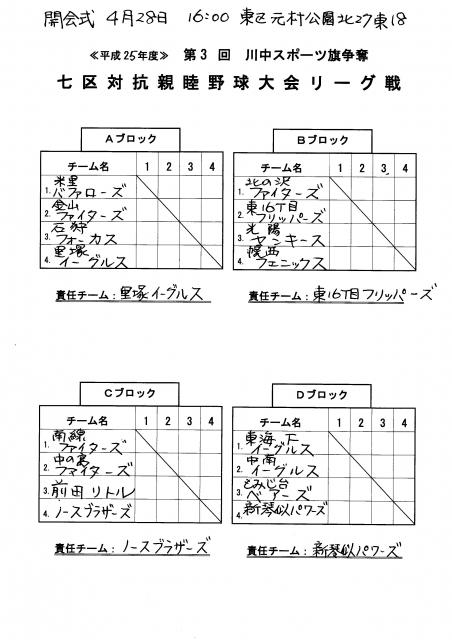 開会式 4月28日 16:00 東区元村公園北27東18
≪平成25年度≫ 第3回 川中スポーツ旗争奪
七区対抗親睦野球大会リーグ戦
Aブロック
チーム名 1 2 3 4
1. 米里バファローズ
2. 金山ファイターズ
3. 石狩フォーカス
4. 里塚イーグルス
責任チーム:里塚イーグルス
Bブロック
チーム名 1 2 3 4
1. 北の沢ファイターズ
2. 東16丁目フリッパーズ
3. 光陽ヤンキース
4. 幌西フェニックス
責任チーム:東16丁目フリッパーズ
Cブロック
チーム名 1 2 3 4
1. 南線ファイターズ
2. 中の島ファイターズ
3. 前田リトル
4. ノースブラザーズ
責任チーム:ノースブラザーズ
Dブロック
チーム名 1 2 3 4
1. 東海下イーグルス
2. 中南イーグルス
3. とみじ台ベアーズ
4. 新琴似パワーズ
責任チーム:新琴似パワーズ